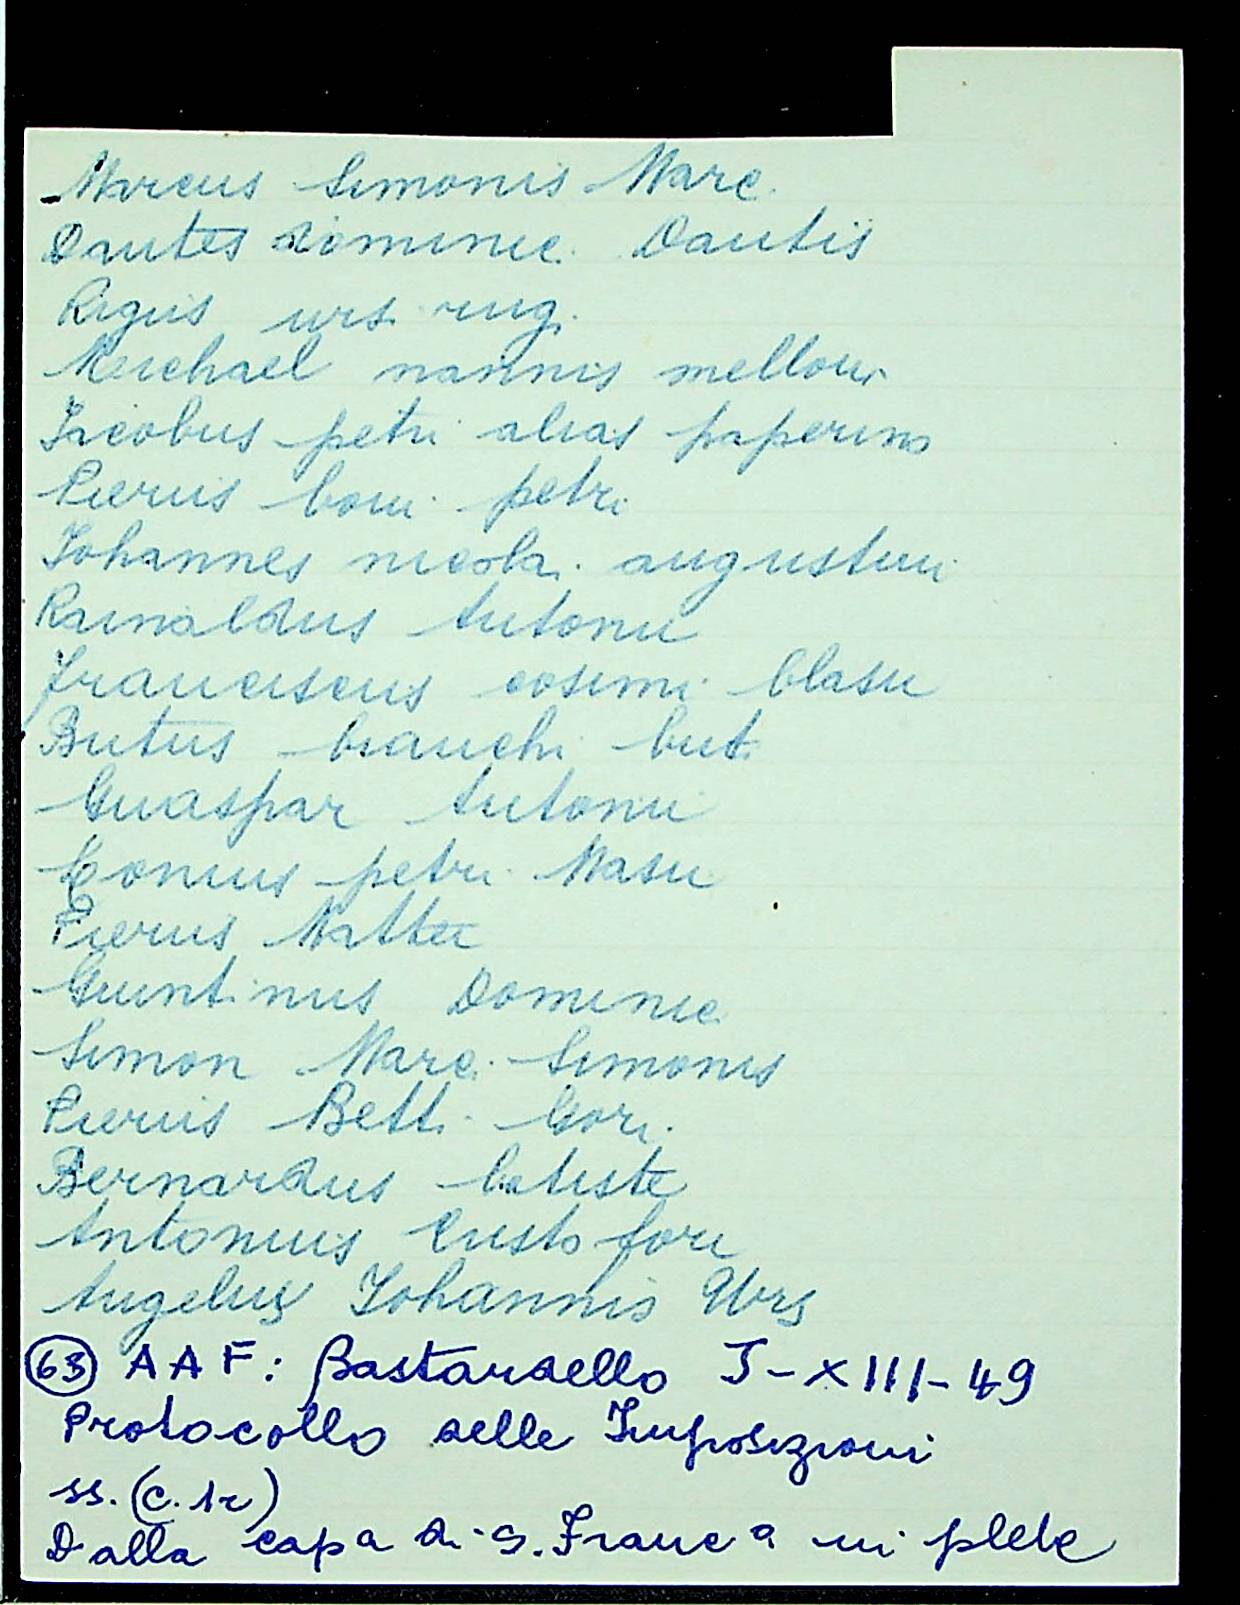 Marcus Simonis Marc.
Dantes dominic. Dantis
Rigus urs. rug.
Meichael nannis mellour
Jacobus petri alias paperino
Pierus boni petri
Johannes nicolai augustini
Rainaldus Antonii
Franciscus cosimi blasii
Butus branchi but.
Guaspar Antonii
petri Masii
Pierus Mattei
Guintinus Dominic
Simon Marc. Simonis
Pierus Bett. Gori.
Bernardus batiste
Antonius Cristofori
Angelus Johannis Urs
63 AAF: Bastardello I-XIII-49
Protocollo delle Imposizioni
ss. (c. 1r)
Dalla capa di S. Franc.a in plebe